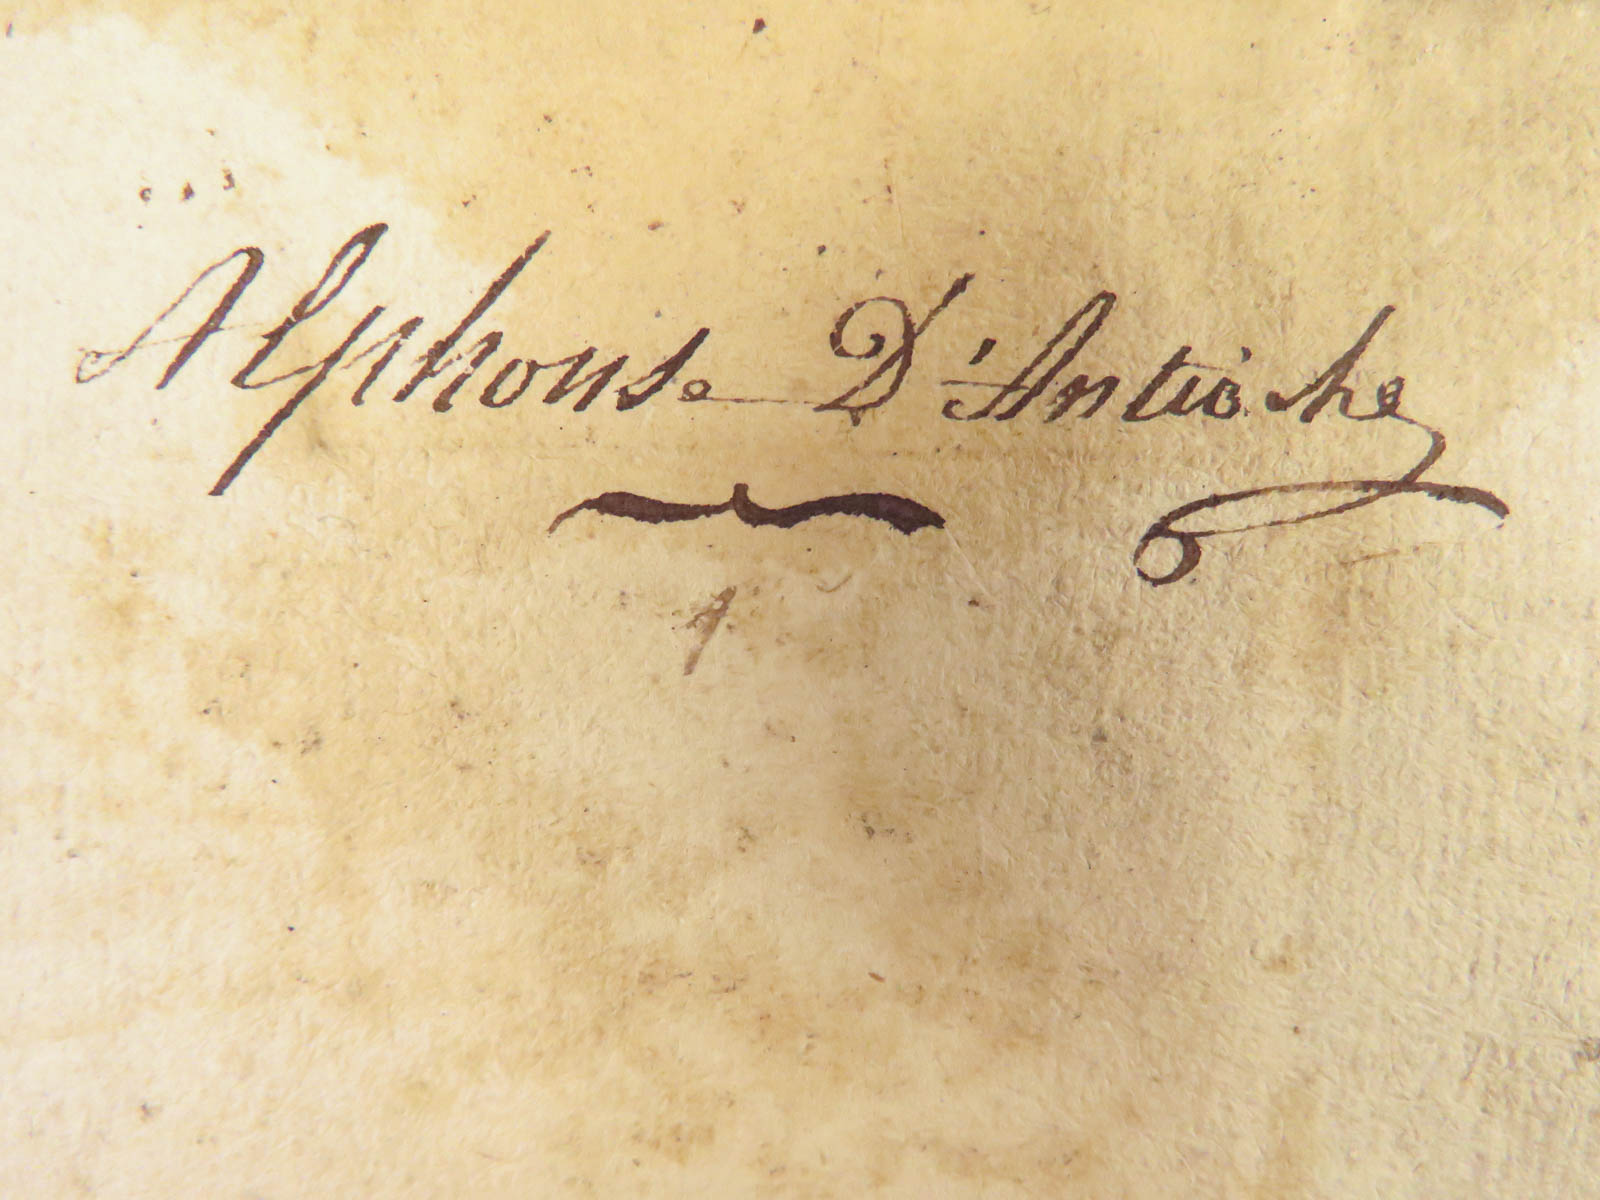 Alphonse D'Antioche